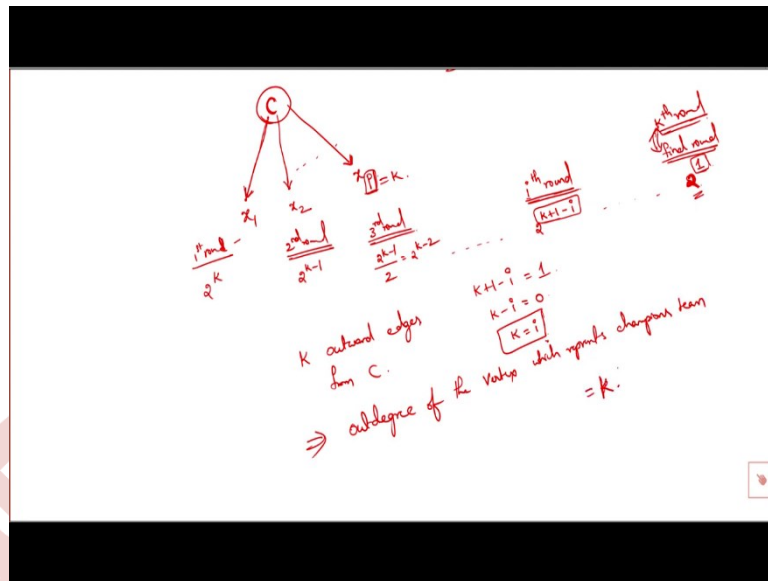 C
x₁
x₂
xᵢ = K.
1st round
2^K
2nd round
2^(K-1)
3rd round
2^(K-1)/2 = 2^(K-2)
ith round
2^(K+1-i)
Kth round
final round
2^1
K+1-i = 1.
K-i = 0
K = i
K outward edges
from C.
⇒ outdegree of the vertex which represents champions team
= K.